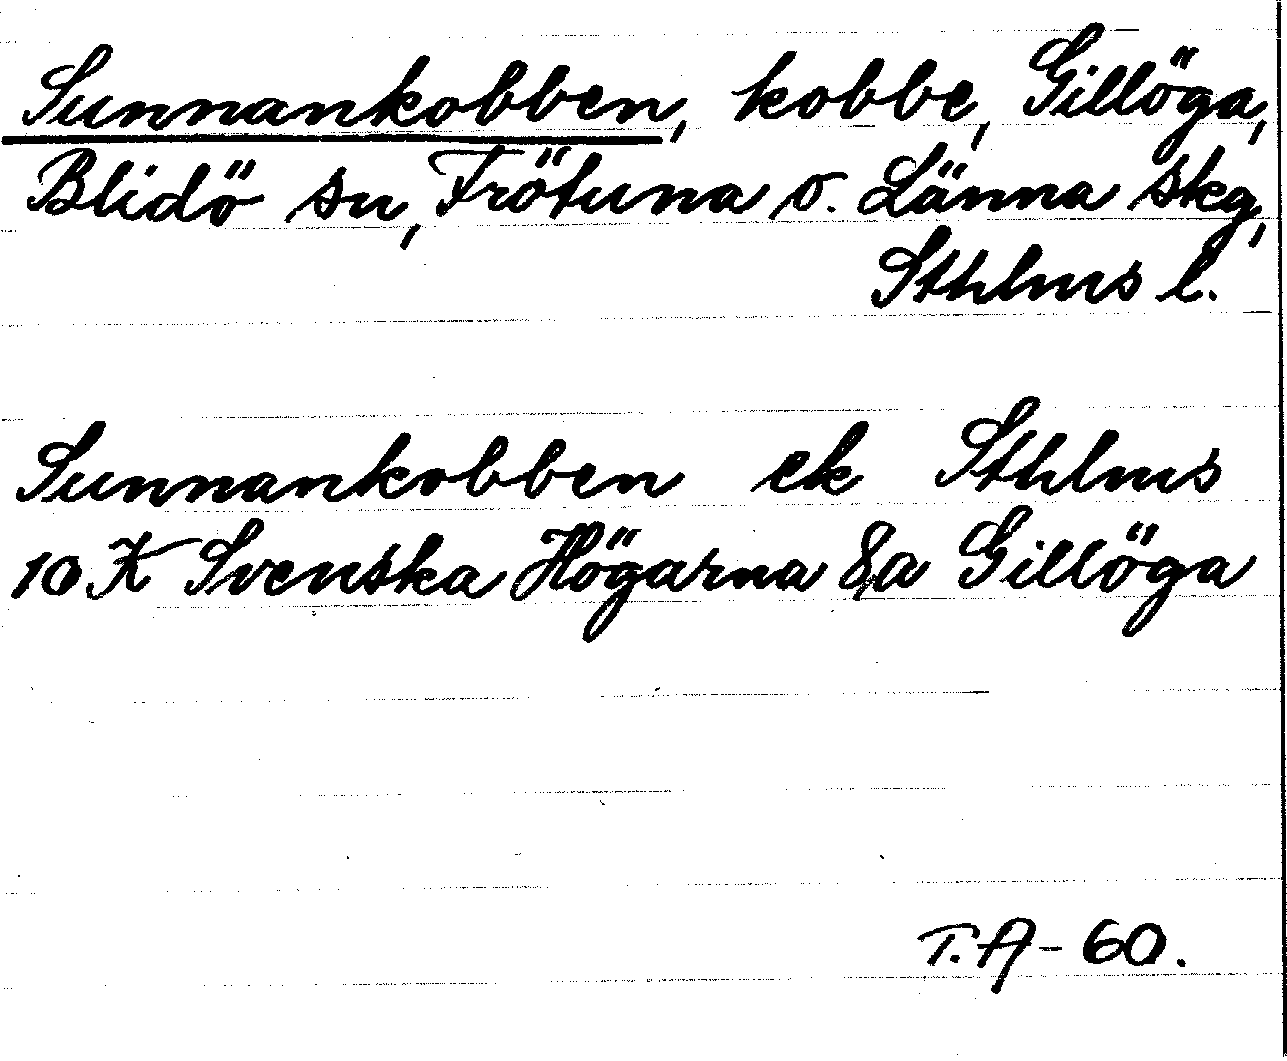 Sunnankobben, kobbe, Gillöga,
Blidö sn, Frötuna o. Länna skg,
Sthlms l.
Sunnankobben ek Sthlms
10 K Svenska Högarna 8a Gillöga
T.A-60.